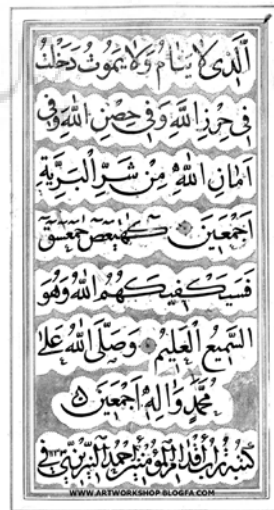 الَّذِی لَا یَنَامُ وَلَا یَمُوتُ دَخَلْتُ
فِی حِرْزِ اللَّهِ وَفِی حِصْنِ اللَّهِ وَفِی
اَمَانِ اللَّهِ مِنْ شَرِّ الْبَرِیَّةِ
اَجْمَعِینَ كهیعص حمعسق
فَسَیَكْفِیكَهُمُ اللَّهُ وَهُوَ
السَّمِیعُ الْعَلِیمُ وَصَلَّی اللَّهُ عَلَی
مُحَمَّدٍ وَالِهِ اَجْمَعِینَ
كتبه تراب أقدام المؤمنین احمد النیریزی فی
WWW.ARTWORKSHOP.BLOGFA.COM